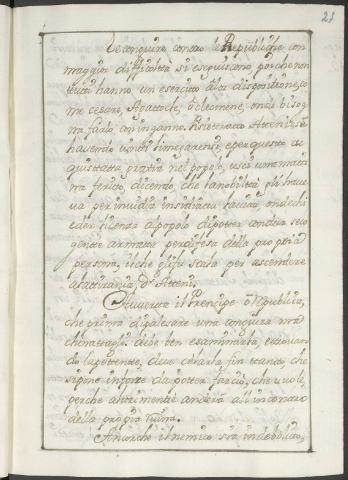 21
Le congiure contro le Republiche con
maggior difficoltà si esequiscano, perche non
tutti hanno un esercito alla dispositione, co
me Cesare, Agatocle, e Cleomene, onde bisog
na farlo con inganno. Pisistrato Ateniese
havendo vinti i Megarensi, e per questo ac
quistata gratia nel popolo, uscì una matti
na ferito, dicendo, che la nobiltà gli have
va per invidia insidiata la vita, onde chi
eder licenza al popolo di poter condur seco
gente armata per difesa della propria
persona, il che di fu scala per ascendere
alla tirania, d'Atene.
Avverta il Prencipe ò Republica,
che prima di palesare una congiura ma
chinatagli deve ben esaminarla, et essen
do la potente, deve celarla fin tanto, che
si pone in forze da poter farciò, che vuole,
perche altrimenti anderà all'incontro
della propria ruina.
Ancorche il nemico sia indebolito,